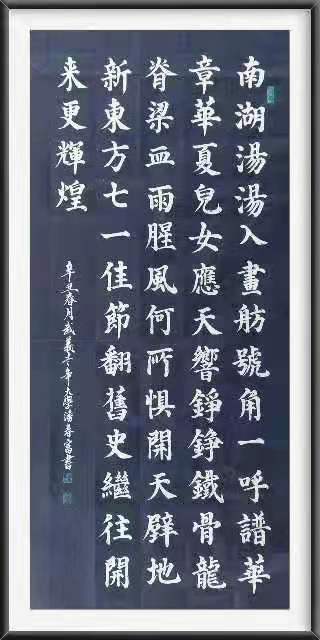 南湖湯湯入畫舫號角一呼譜華
章華夏兒女應天響錚錚鐵骨龍
脊梁血雨腥風何所惧開天辟地
新東方七一佳節翻舊史繼往開
来更輝煌
辛丑春月武義老年大學潘春富書